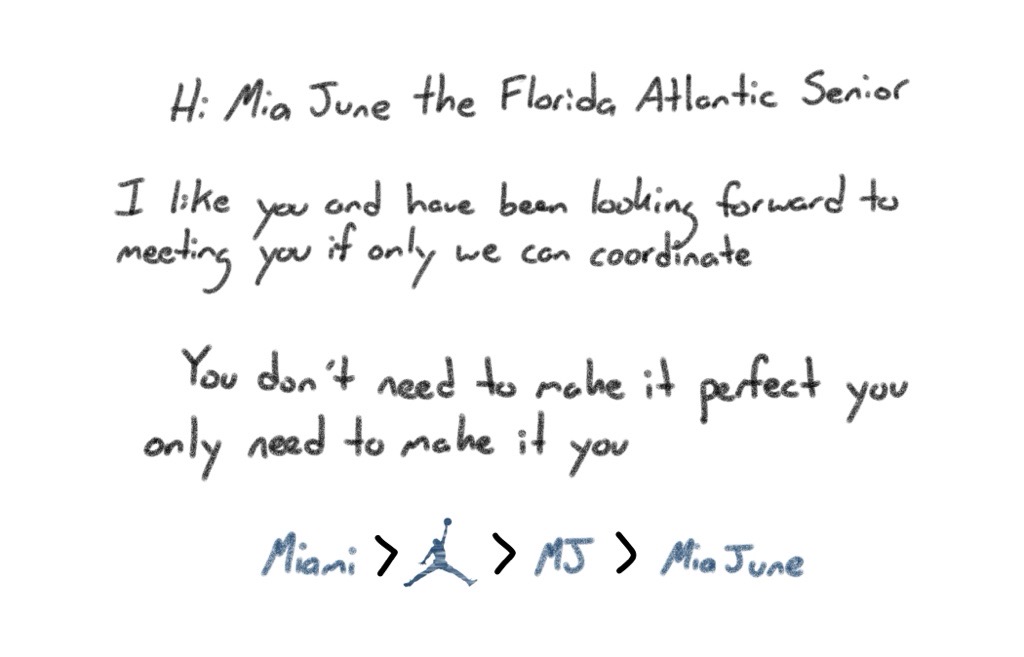 Hi Mia June the Florida Atlantic Senior
I like you and have been looking forward to
meeting you if only we can coordinate
You don't need to make it perfect you
only need to make it you
Miami > > MJ > Mia June